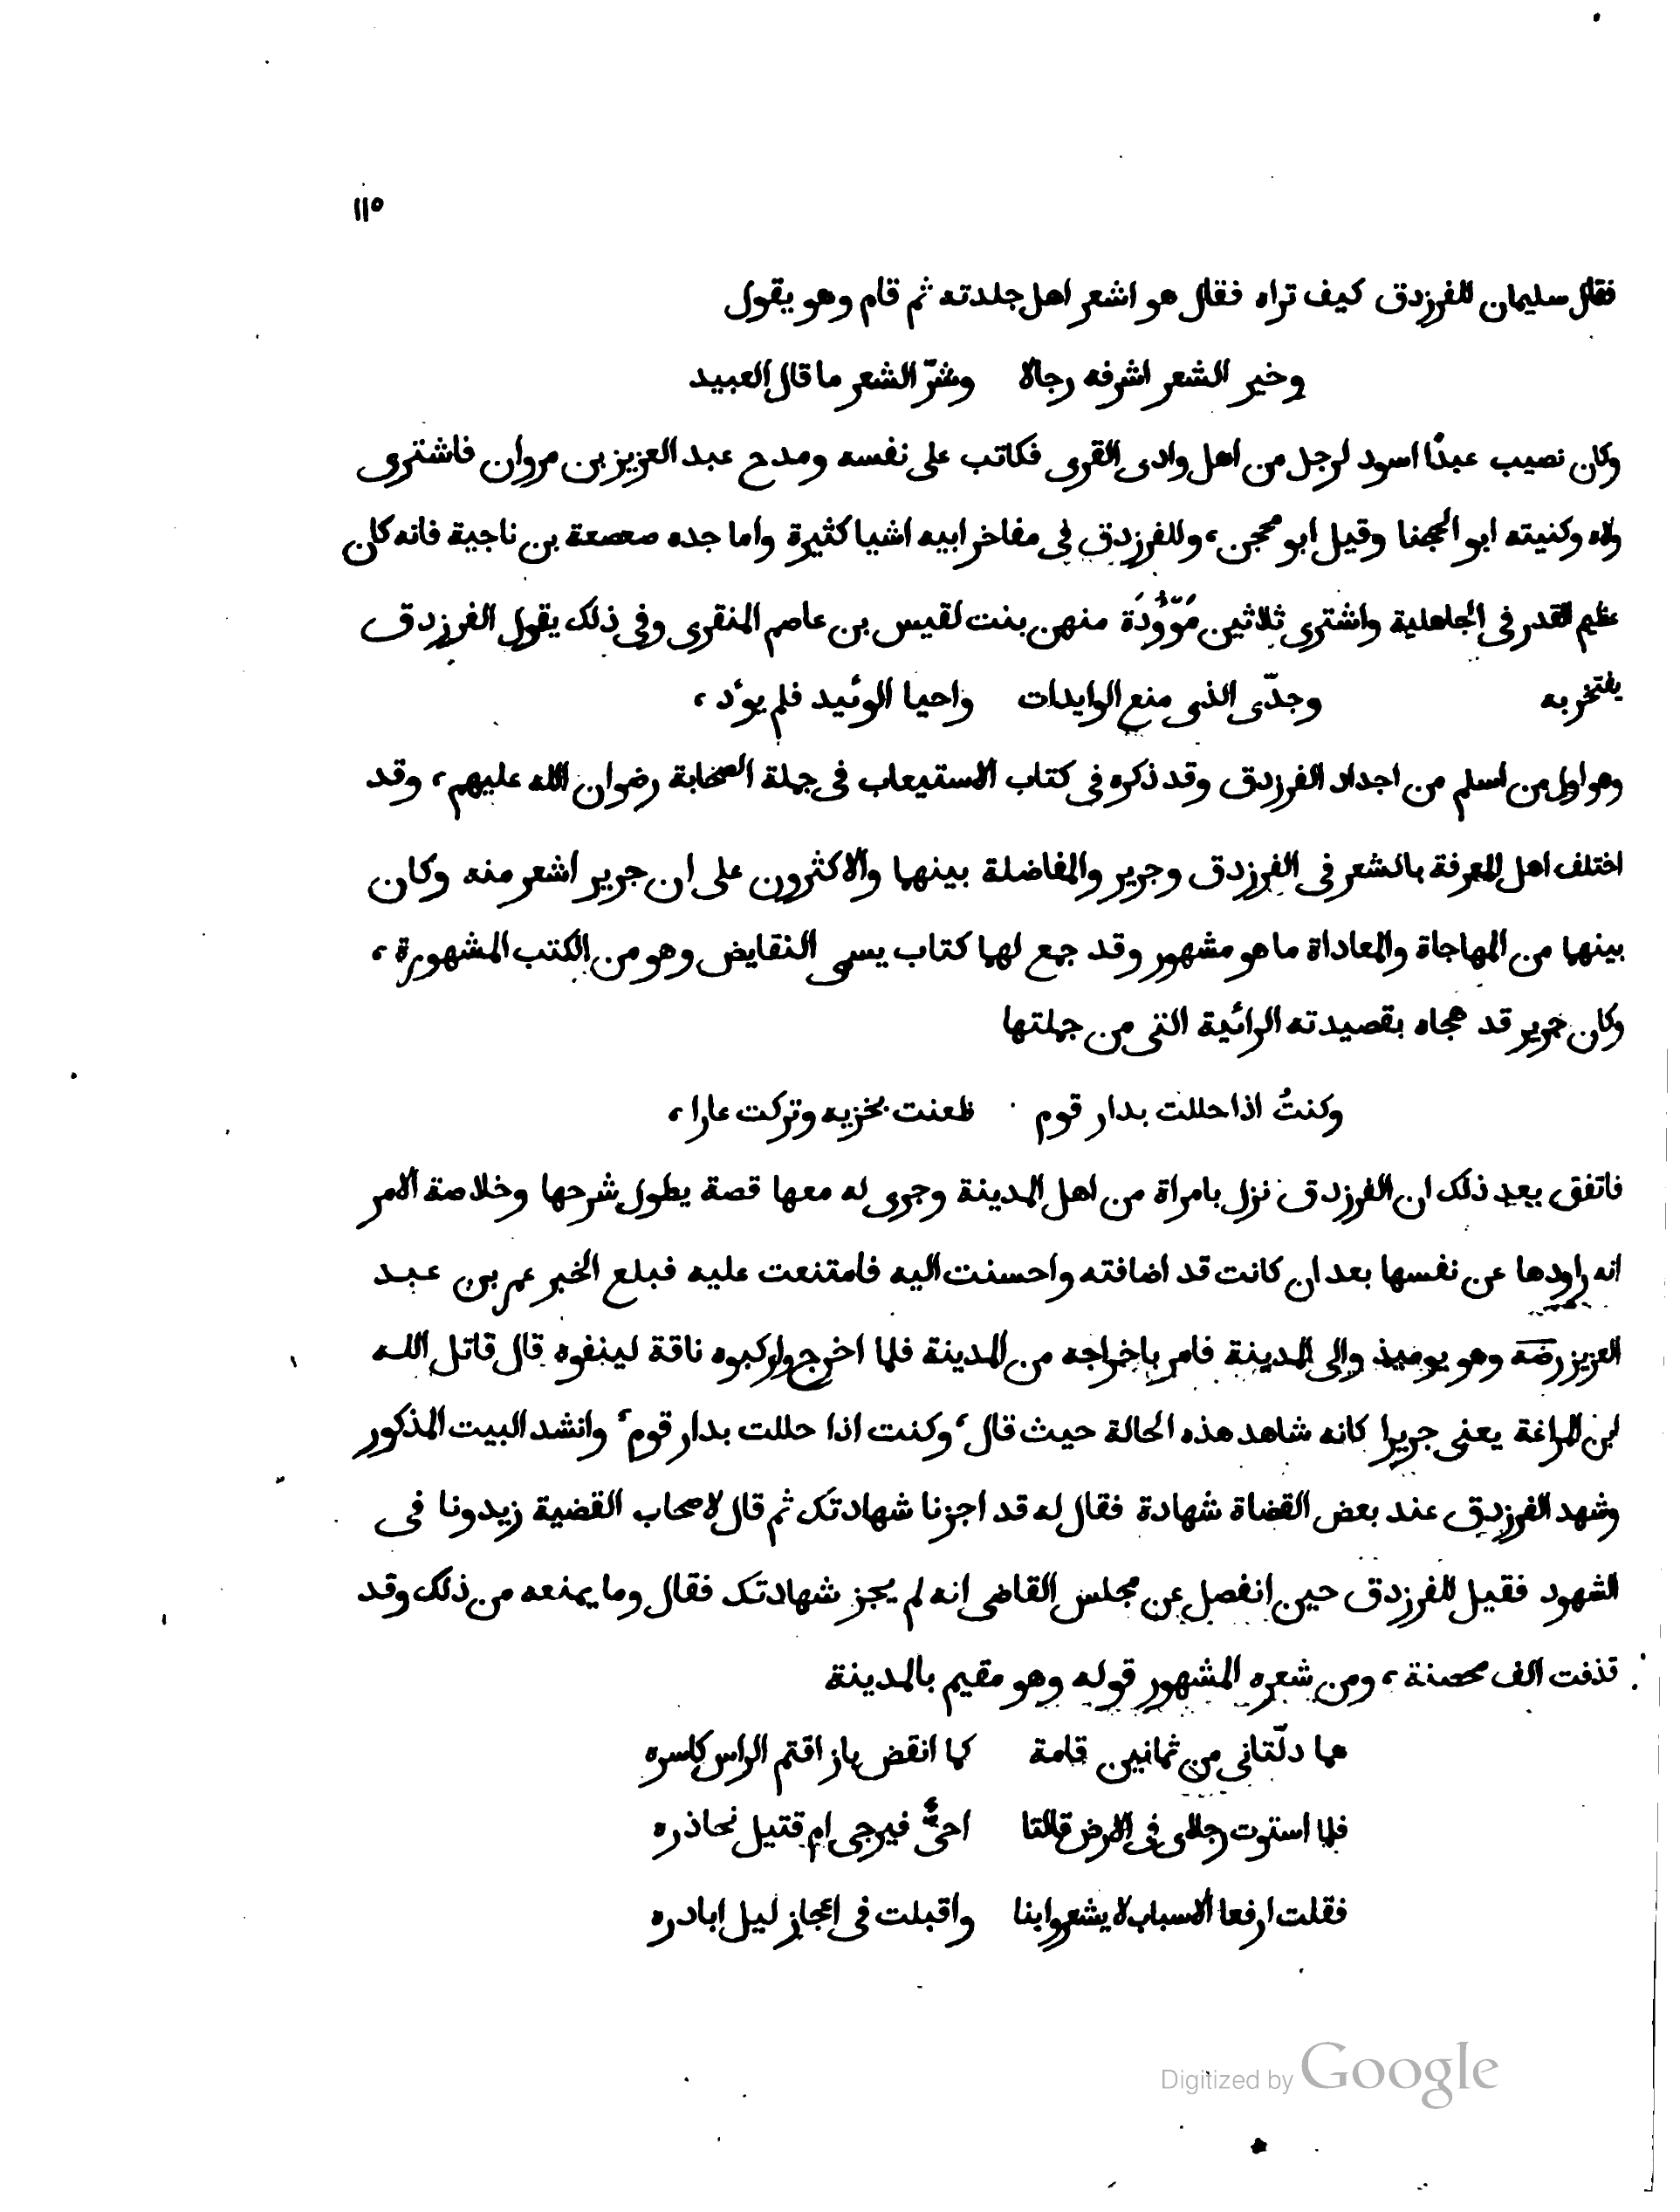 ١١٥
فقال سليمان للفرزدق كيف تراه فقال هو اشعر اهل جلدته ثم قام وهو يقول
وخير الشعر اشرفه رجالا وشرّ الشعر ما قال العبيد
وكان نصيب عبدًا اسود لرجل من اهل وادى القرى فكاتب على نفسه ومدح عبد العزيز بن مروان فاشترى
ولاه وكنيته ابو الحجنا وقيل ابو محجن، وللفرزدق فى مفاخر ابيه اشيا كثيرة واما جده صعصعة بن ناجية فانه كان
عظيم القدر فى الجاهلية واشترى ثلاثين مَوْؤُدَة منهن بنت لقيس بن عاصم المنقرى وفى ذلك يقول الفرزدق
يفتخر به وجدّى الذى منع الوايدات واحيا الوئيد فلم يوٴد،
وهو اول من اسلم من اجداد الفرزدق وقد ذكره فى كتاب الاستيعاب فى جملة الصحابة رضوان الله عليهم، وقد
اختلف اهل المعرفة بالشعر فى الفرزدق وجرير والمفاضلة بينهما والاكثرون على ان جرير اشعر منه وكان
بينهما من المهاجاة والمعاداة ما هو مشهور وقد جمع لهما كتاب يسمى النقايض وهو من الكتب المشهورة،
وكان جرير قد هجاه بقصيدته الرائية التى من جملتها
وكنتُ اذا حللت بدار قوم ظعنت بخزيه وتركت عارا،
فاتفق بعد ذلك ان الفرزدق نزل بامراة من اهل المدينة وجرى له معها قصة يطول شرحها وخلاصة الامر
انه راودها عن نفسها بعد ان كانت قد اضافته واحسنت اليه فامتنعت عليه فبلع الخبر عمر بن عبد
العزيز رضه وهو يوميذ والى المدينة فامر باخراجه من المدينة فلما اخرج واركبوه ناقة لينفوه قال قاتل الله
ابن المراغة يعنى جريرا كانه شاهد هذه الحالة حيث قال، وكنت اذا حللت بدار قوم، وانشد البيت المذكور
وشهد الفرزدق عند بعض القضاة شهادة فقال له قد اجزنا شهادتك ثم قال لاصحاب القضية زيدونا فى
الشهود فقيل للفرزدق حين انفصل عن مجلس القاضى انه لم يجز شهادتك فقال وما يمنعه من ذلك وقد
قذفت الف محصنة، ومن شعره المشهور قوله وهو مقيم بالمدينة
هما دلّتانى من ثمانين قامة كما انقض باز اقتم الراس كاسره
فلما استوت رجلاى فى الارض قالتا احىٌّ فيرجى ام قتيل نحاذره
فقلت ارفعا الاسباب لا يشعروا بنا واقبلت فى اعجاز ليل ابادره
Digitized by Google